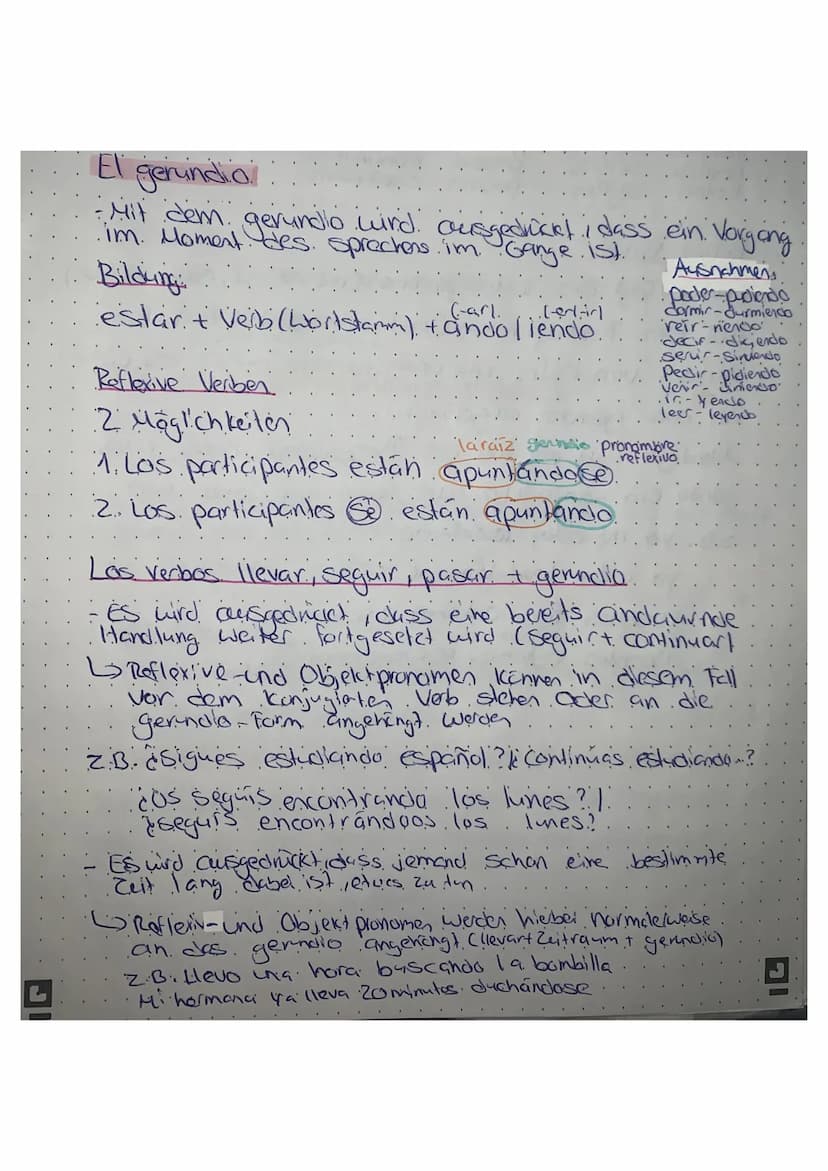 El gerundio
- Mit dem gerundio wird ausgedrückt, dass ein Vorgang
im Moment des sprechens im Gange ist.
Bildung:
(-ar) (-er/-ir)
estar + Verb (Wortstamm) + ando / iendo
Ausnahmen
poder - pudiendo
dormir - durmiendo
reír - riendo
decir - diciendo
servir - sirviendo
pedir - pidiendo
venir - viniendo
ir - yendo
leer - leyendo
Reflexive Verben
2 Möglichkeiten
la raíz gerundio pronombre
reflexivo
1. Los participantes están apuntándose.
2. Los participantes se están apuntando.
Los verbos llevar, seguir, pasar + gerundio
- Es wird ausgedrückt, dass eine bereits andauernde
Handlung weiter fortgesetzt wird (seguir + continuar)
↳ Reflexive- und Objektpronomen können in diesem Fall
vor dem konjugierten Verb stehen oder an die
gerundio-Form angehängt werden
z.B. ¿Sigues estudiando español? / ¿Continúas estudiando...?
¿Os seguís encontrando los lunes? /
¿seguís encontrándoos los lunes?
- Es wird ausgedrückt, dass jemand schon eine bestimmte
Zeit lang dabei ist, etwas zu tun.
↳ Reflexiv- und Objektpronomen werden hierbei normalerweise
an das gerundio angehängt (llevar + Zeitraum + gerundio)
z.B. Llevo una hora buscando la bombilla
Mi hermana ya lleva 20 minutos duchándose